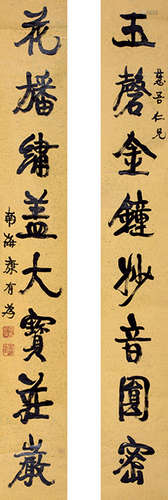 吾仁兄
玉磬金鐘妙音圓密
花旛繡盖大寶莊嚴
南海康有為